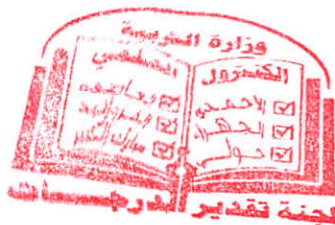 وزارة التربية
الكنترول
☑ الأحمدي
☑ الجهراء
☑ حولي
☑ العاصمة
☑ الفروانية
☑ مبارك الكبير
لجنة تقدير الدرجات